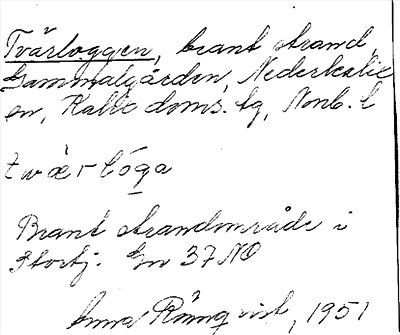 Tvärloggen, brant strand,
Gammalgården, Nederkalix
en, Kalix doms. tg, Nonb. l
tvæ̀rlóga
Brant strandområde i
Storbj. Gn 37 NO
Anna Rönnqvist, 1951